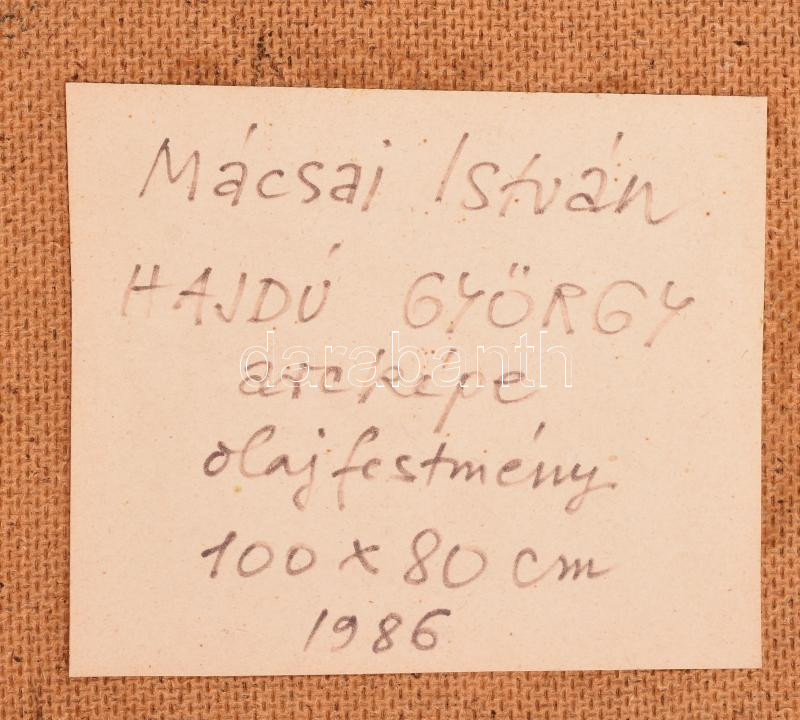 Mácsai István
HAJDÚ GYÖRGY
arcképe
darabanth
olajfestmény
100 x 80 cm
1986